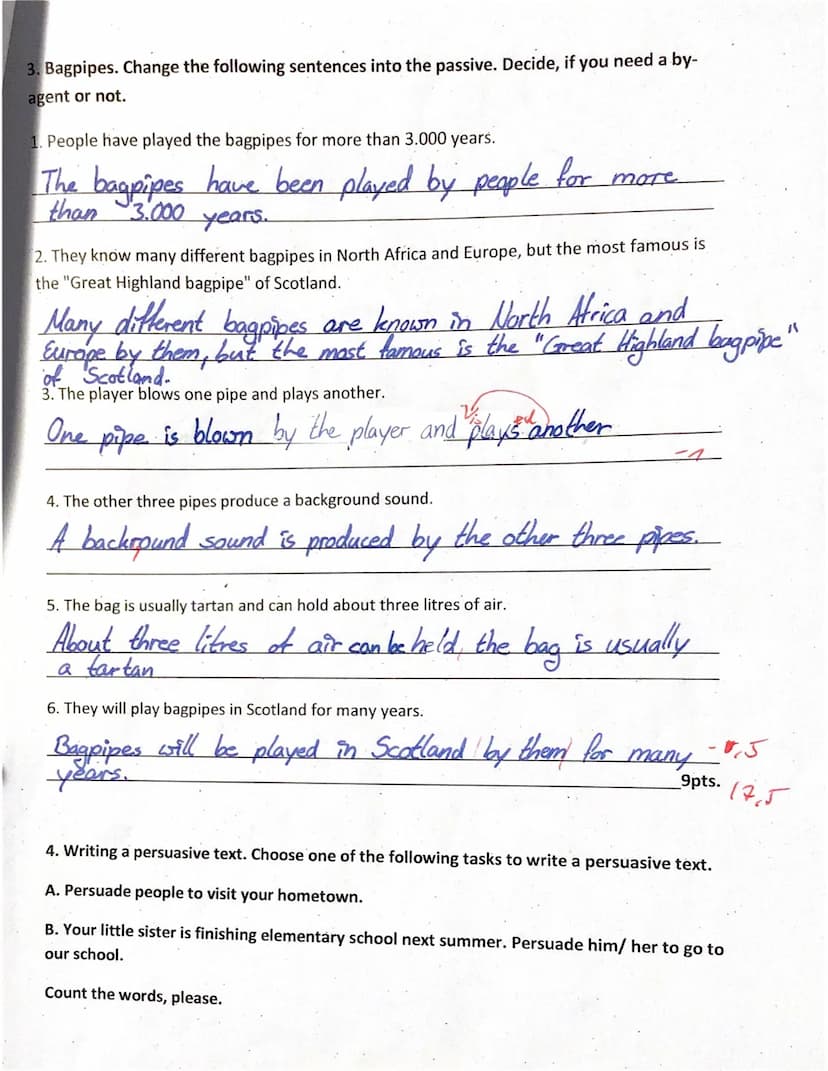 3. Bagpipes. Change the following sentences into the passive. Decide, if you need a by-
agent or not.
1. People have played the bagpipes for more than 3.000 years.
The bagpipes have been played by people for more
than 3.000 years.
2. They know many different bagpipes in North Africa and Europe, but the most famous is
the "Great Highland bagpipe" of Scotland.
Many different bagpipes are known in North Africa and
Europe by them, but the most famous is the "Great Highland bagpipe"
of Scotland.
3. The player blows one pipe and plays another.
is ed
One pipe is blown by the player and plays another
-1
4. The other three pipes produce a background sound.
A backround sound is produced by the other three pipes.
5. The bag is usually tartan and can hold about three litres of air.
About three litres of air can be held, the bag is usually
a tartan
6. They will play bagpipes in Scotland for many years.
Bagpipes will be played in Scotland by them for many -0,5
years.
9pts. 17,5
4. Writing a persuasive text. Choose one of the following tasks to write a persuasive text.
A. Persuade people to visit your hometown.
B. Your little sister is finishing elementary school next summer. Persuade him/ her to go to
our school.
Count the words, please.